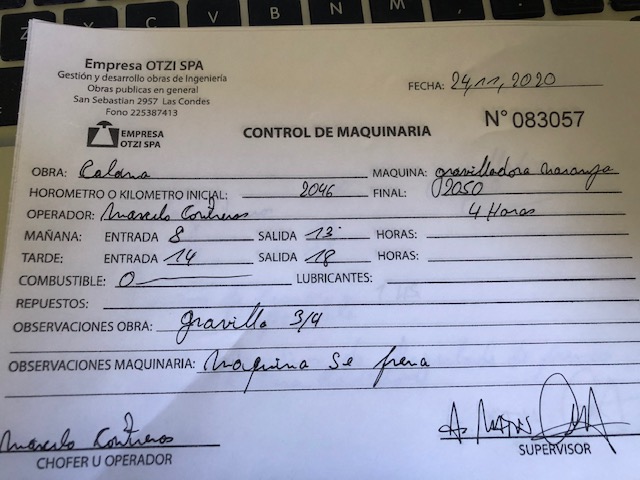 Empresa OTZI SPA
Gestión y desarrollo obras de Ingeniería
Obras publicas en general
San Sebastian 2957 Las Condes
Fono 225387413
FECHA: 24,11,2020
EMPRESA
OTZI SPA
CONTROL DE MAQUINARIA
N° 083057
OBRA: Colonia MAQUINA: naranja
HOROMETRO O KILOMETRO INICIAL: 2046 FINAL: 02050
OPERADOR: Marcelo Contreras 4 Horas
MAÑANA: ENTRADA 8 SALIDA 13 HORAS:
TARDE: ENTRADA 14 SALIDA 18 HORAS:
COMBUSTIBLE: 0 LUBRICANTES:
REPUESTOS:
OBSERVACIONES OBRA: gravilla 3/4
OBSERVACIONES MAQUINARIA: Maquina se para
Marcelo Contreras
CHOFER U OPERADOR
SUPERVISOR
Z
X
C
V
B
N
M